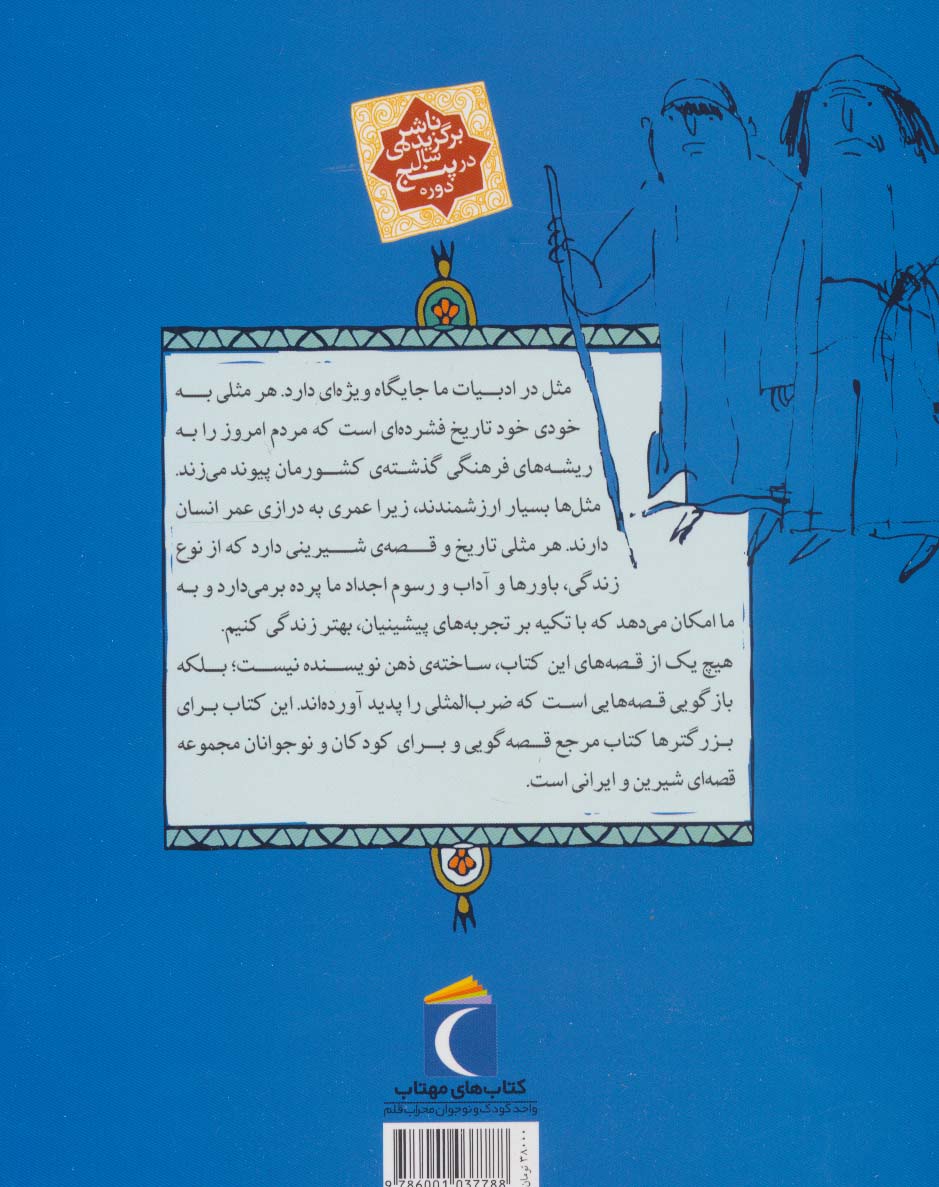 ناشر
برگزیده‌ی
سال
در پنج
دوره
مثل در ادبیات ما جایگاه ویژه‌ای دارد. هر مثلی به
خودی خود تاریخ فشرده‌ای است که مردم امروز را به
ریشه‌های فرهنگی گذشته‌ی کشورمان پیوند می‌زند.
مثل‌ها بسیار ارزشمندند، زیرا عمری به درازی عمر انسان
دارند. هر مثلی تاریخ و قصه‌ی شیرینی دارد که از نوع
زندگی، باورها و آداب و رسوم اجداد ما پرده برمی‌دارد و به
ما امکان می‌دهد که با تکیه بر تجربه‌های پیشینیان، بهتر زندگی کنیم.
هیچ یک از قصه‌های این کتاب، ساخته‌ی ذهن نویسنده نیست؛ بلکه
بازگویی قصه‌هایی است که ضرب‌المثلی را پدید آورده‌اند. این کتاب برای
بزرگترها کتاب مرجع قصه‌گویی و برای کودکان و نوجوانان مجموعه
قصه‌ای شیرین و ایرانی است.
کتاب‌های مهتاب
واحد کودک و نوجوان محراب قلم
۳۸۰۰۰ تومان
9 786001 037788